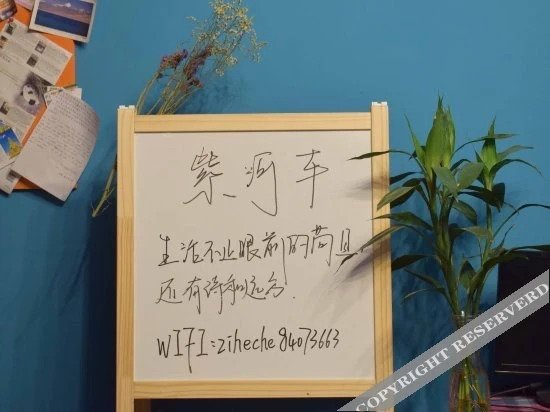 紫河车
生活不止眼前的苟且,
还有诗和远方.
WIFI:ziheche84073663
COPYRIGHT RESERVERD